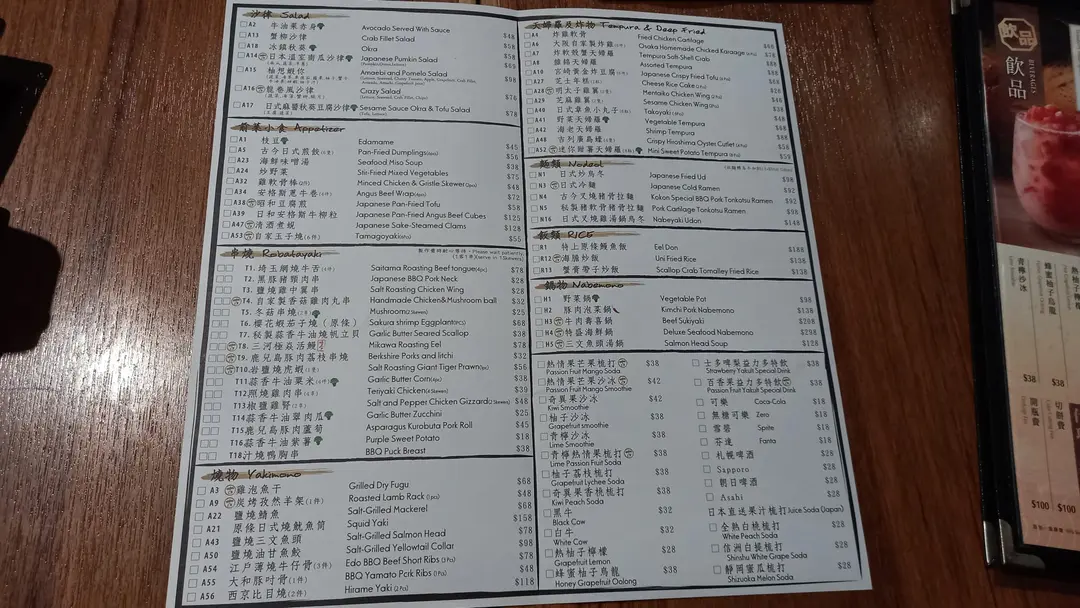 沙律 Salad
A2 牛油果赤身 Avocado Served With Sauce $48
A13 蟹柳沙律 Crab Fillet Salad $58
A18 冰鎮秋葵 Okra $58
A14 日本溫室南瓜沙律 Japanese Pumkin Salad $69
A15 柚悠蝦你 Amaebi and Pomelo Salad $98
A16 龍卷風沙律 Crazy Salad $76
A17 日式麻醬秋葵豆腐沙律 Sesame Sauce Okra & Tofu Salad $78
煎菜小食 Appetizer
A1 枝豆 Edamame $45
A5 古今日式煎餃 Pan-Fried Dumpling $56
A23 海鮮味噌湯 Seafood Miso Soup $38
A24 炒野菜 Stri-Fried Mixed Vegetables $75
A32 雞軟骨棒 Minced Chicken & Gristle Skewer $48
A34 安格斯蔥牛卷 Angus Beef Wrap $72
A38 昭和豆腐煎 Japanese Pan-Fried Tofu $58
A39 日和安格斯牛柳粒 Japanese Pan-Fried Angus Beef Cubes $125
A47 清酒煮蜆 Japanese Sake-Steamed Clams $128
A53 自家玉子燒(6件) Tamagoyaki $55
串燒 Robatayaki
Please wait patiently
T1. 埼玉網燒牛舌 Saitama Roasting Beef tongue $78
T2. 黑豚豬頸肉串 Japanese BBQ Pork Neck $28
T3. 鹽燒雞中翼串 Salt Roasting Chicken Wing $28
T4. 自家製香菇雞肉丸串 Handmade Chicken&Mushroom ball $32
T5. 冬菇串燒 Mushroom $25
T6. 櫻花蝦茄子燒(原條) Sakura shrimp Eggplant $68
T7. 秘製蒜香牛油燒帆立貝 Garlic Butter Seared Scallop $38
T8. 三河極焱活鰻 Mikawa Roasting Eel $78
T9. 鹿兒島豚肉荔枝串燒 Berkshire Porks and litchi $32
T10. 岩鹽燒虎蝦 Salt Roasting Giant Tiger Prawn $56
T11 蒜香牛油粟米 Garlic Butter Corn $38
T12 照燒雞肉串 Teriyaki Chicken $39
T13 椒鹽雞腎 Salt and Pepper Chicken Gizzard $48
T14 蒜香牛油翠肉瓜 Garlic Butter Zucchini $25
T15 鹿兒島豚肉蘆筍 Asparagus Kurobuta Pork Roll $45
T16 蒜香牛油紫薯 Purple Sweet Potato $18
T18 汁燒鴨胸串 BBQ Puck Breast $38
燒物 Yakimono
A3 雞泡魚干 Grilled Dry Fugu $68
A9 炭烤孜然羊架(1件) Roasted Lamb Rack $48
A22 鹽燒鯖魚 Salt-Grilled Mackerel $68
A21 原條日式燒魷魚筒 Squid Yaki $158
A43 鹽燒三文魚頭 Salt-Grilled Salmon Head $78
A50 鹽燒油甘魚鮫 Salt-Grilled Yellowtail Collar $98
A54 江戶薄燒牛仔骨(3件) Edo BBQ Beef Short Ribs $78
A55 大和豚吋骨(1件) BBQ Yamato Pork Ribs $48
A56 西京比目燒(2件) Hirame Yaki $118
天婦羅及炸物 Tempura & Deep Fried
A4 炸雞軟骨 Fried Chicken Cartilage
A6 大阪自家製炸雞 Osaka Homemade Chicked Karaage
A7 炸軟殼蟹天婦羅 Tempura Soft-Shell Crab
A8 雜錦天婦羅 Assorted Tempura
A10 宮崎黃金炸豆腐 Japanese Crispy Fried Tofu
A27 芝士年糕 Cheese Rice Cake
A28 明太子雞翼 Mentaiko Chicken Wing
A29 芝麻雞翼 Sesame Chicken Wing
A40 日式章魚小丸子 Takoyaki
A41 野菜天婦羅 Vegetable Tempura
A42 海老天婦羅 Shrimp Tempura
A48 吉列廣島蠔 Crispy Hiroshima Oyster Cutlet
A52 迷你甜薯天婦羅 Mini Sweet Potato Tempura $59
麵類 Nodeol
N1 日式炒烏冬 Japanese Fried Ud $98
N3 日式冷麵 Japanese Cold Ramen $52
N4 古今叉燒豬骨拉麵 Kokon Special BBQ Pork Tonkotsu Ramen $92
N5 秘製豬軟骨豬骨拉麵 Pork Cartilage Tonkotsu Ramen $98
N16 日式叉燒雞湯鍋烏冬 Nabeyaki Udon $148
飯類 RICE
R1 特上原條鰻魚飯 Eel Don $188
R12 海膽炒飯 Uni Fried Rice $138
R13 蟹膏帶子炒飯 Scallop Crab Tomalley Fried Rice $138
鍋物 Nabemono
H1 野菜鍋 Vegetable Pot $98
H2 豚肉泡菜鍋 Kimchi Pork Nabemono $138
H3 牛肉壽喜鍋 Beef Sukiyaki $208
H4 特盛海鮮鍋 Deluxe Seafood Nabemono $298
H5 三文魚頭湯鍋 Salmon Head Soup $128
熱情果芒果梳打 $38
Passion Fruit Mango Soda
熱情果芒果沙冰 $42
Passion Fruit Mango Smoothie
奇異果沙冰 $42
Kiwi Smoothie
柚子沙冰 $38
Grapefruit smoothie
青檸沙冰 $38
Lime Smoothie
青檸熱情果梳打 $38
Lime Passion Fruit Soda
柚子荔枝梳打 $38
Grapefruit Lychee Soda
奇異果香桃梳打 $38
Kiwi Peach Soda
黑牛 $32
Black Cow
白牛 $32
White Cow
熱柚子檸檬 $28
Grapefruit Lemon
蜂蜜柚子烏龍 $38
Honey Grapefruit Oolong
士多啤梨益力多特飲 $38
Strawberry Yakult Special Drink
百香果益力多特飲 $38
Passion Fruit Yakult Special Drink
可樂 Coca-Cola $18
無糖可樂 Zero $18
雪碧 Sprite $18
芬達 Fanta $18
札幌啤酒 $28
Sapporo $28
朝日啤酒 $28
Asahi $28
日本直送果汁梳打 Juice Soda (Japan)
全熟白桃梳打 $28
White Peach Soda
信洲白提梳打 $28
Shinshu White Grape Soda
靜岡蜜瓜梳打 $28
Shizuoka Melon Soda
飲品
飲品
BEVERAGES
青檸沙冰
$38
蜂蜜柚子烏龍
$38
開瓶費
$100
切餅費
$100